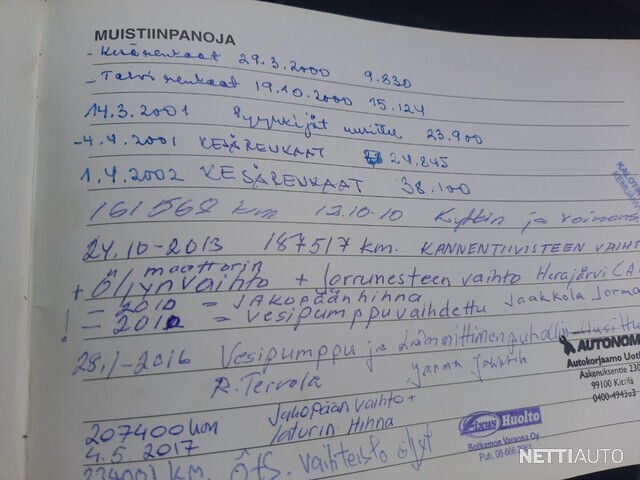 MUISTIINPANOJA
- Kesärenkaat 29.3.2000 9.830
- Talvirenkaat 19.10.2000 15.124
14.3.2001 Pyyhkijät uusittu 23.900
-4.4.2001 KESÄRENKAAT 24.845
1.4.2002 KESÄRENKAAT 38.100
161568 km 12.10-10 Kytkin ja voimans
24.10-2013 187517 km. KANNENTIIVISTEEN VAIHT
moottorin
+ Öljynvaihto + Jorrunesteen vaihto Herajärvi
= 2010 = JAKOPÄÄNHINNA
! = 2010 = Vesipumppu vaihdettu Jaakkola Jorma
28.1-2016 Vesipumppu ja Lämmittimen puhallin Uusittu
R. Tervola Jarma
AUTONOM
Autokorjaamo Uoti
Aakenuksentie 230
99100 Kittilä
0400-494303
207400 km Jakopään vaihto +
4.5 2017 laturin Hihna
Fixus Huolto
Sotkamon Varaosa Oy
Puh. 08-666
234001 KM. Öljyt. vaihteisto öljyt
NETTIAUTO